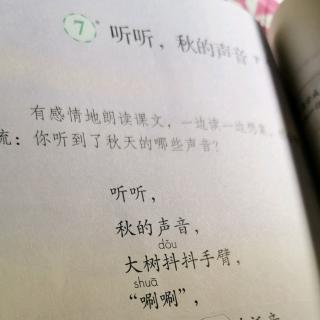 7 听听，秋的声音
有感情地朗读课文，一边读一边想象，
流：你听到了秋天的哪些声音？
听听，
秋的声音，
dǒu
大树抖抖手臂，
shuā
“唰唰”，